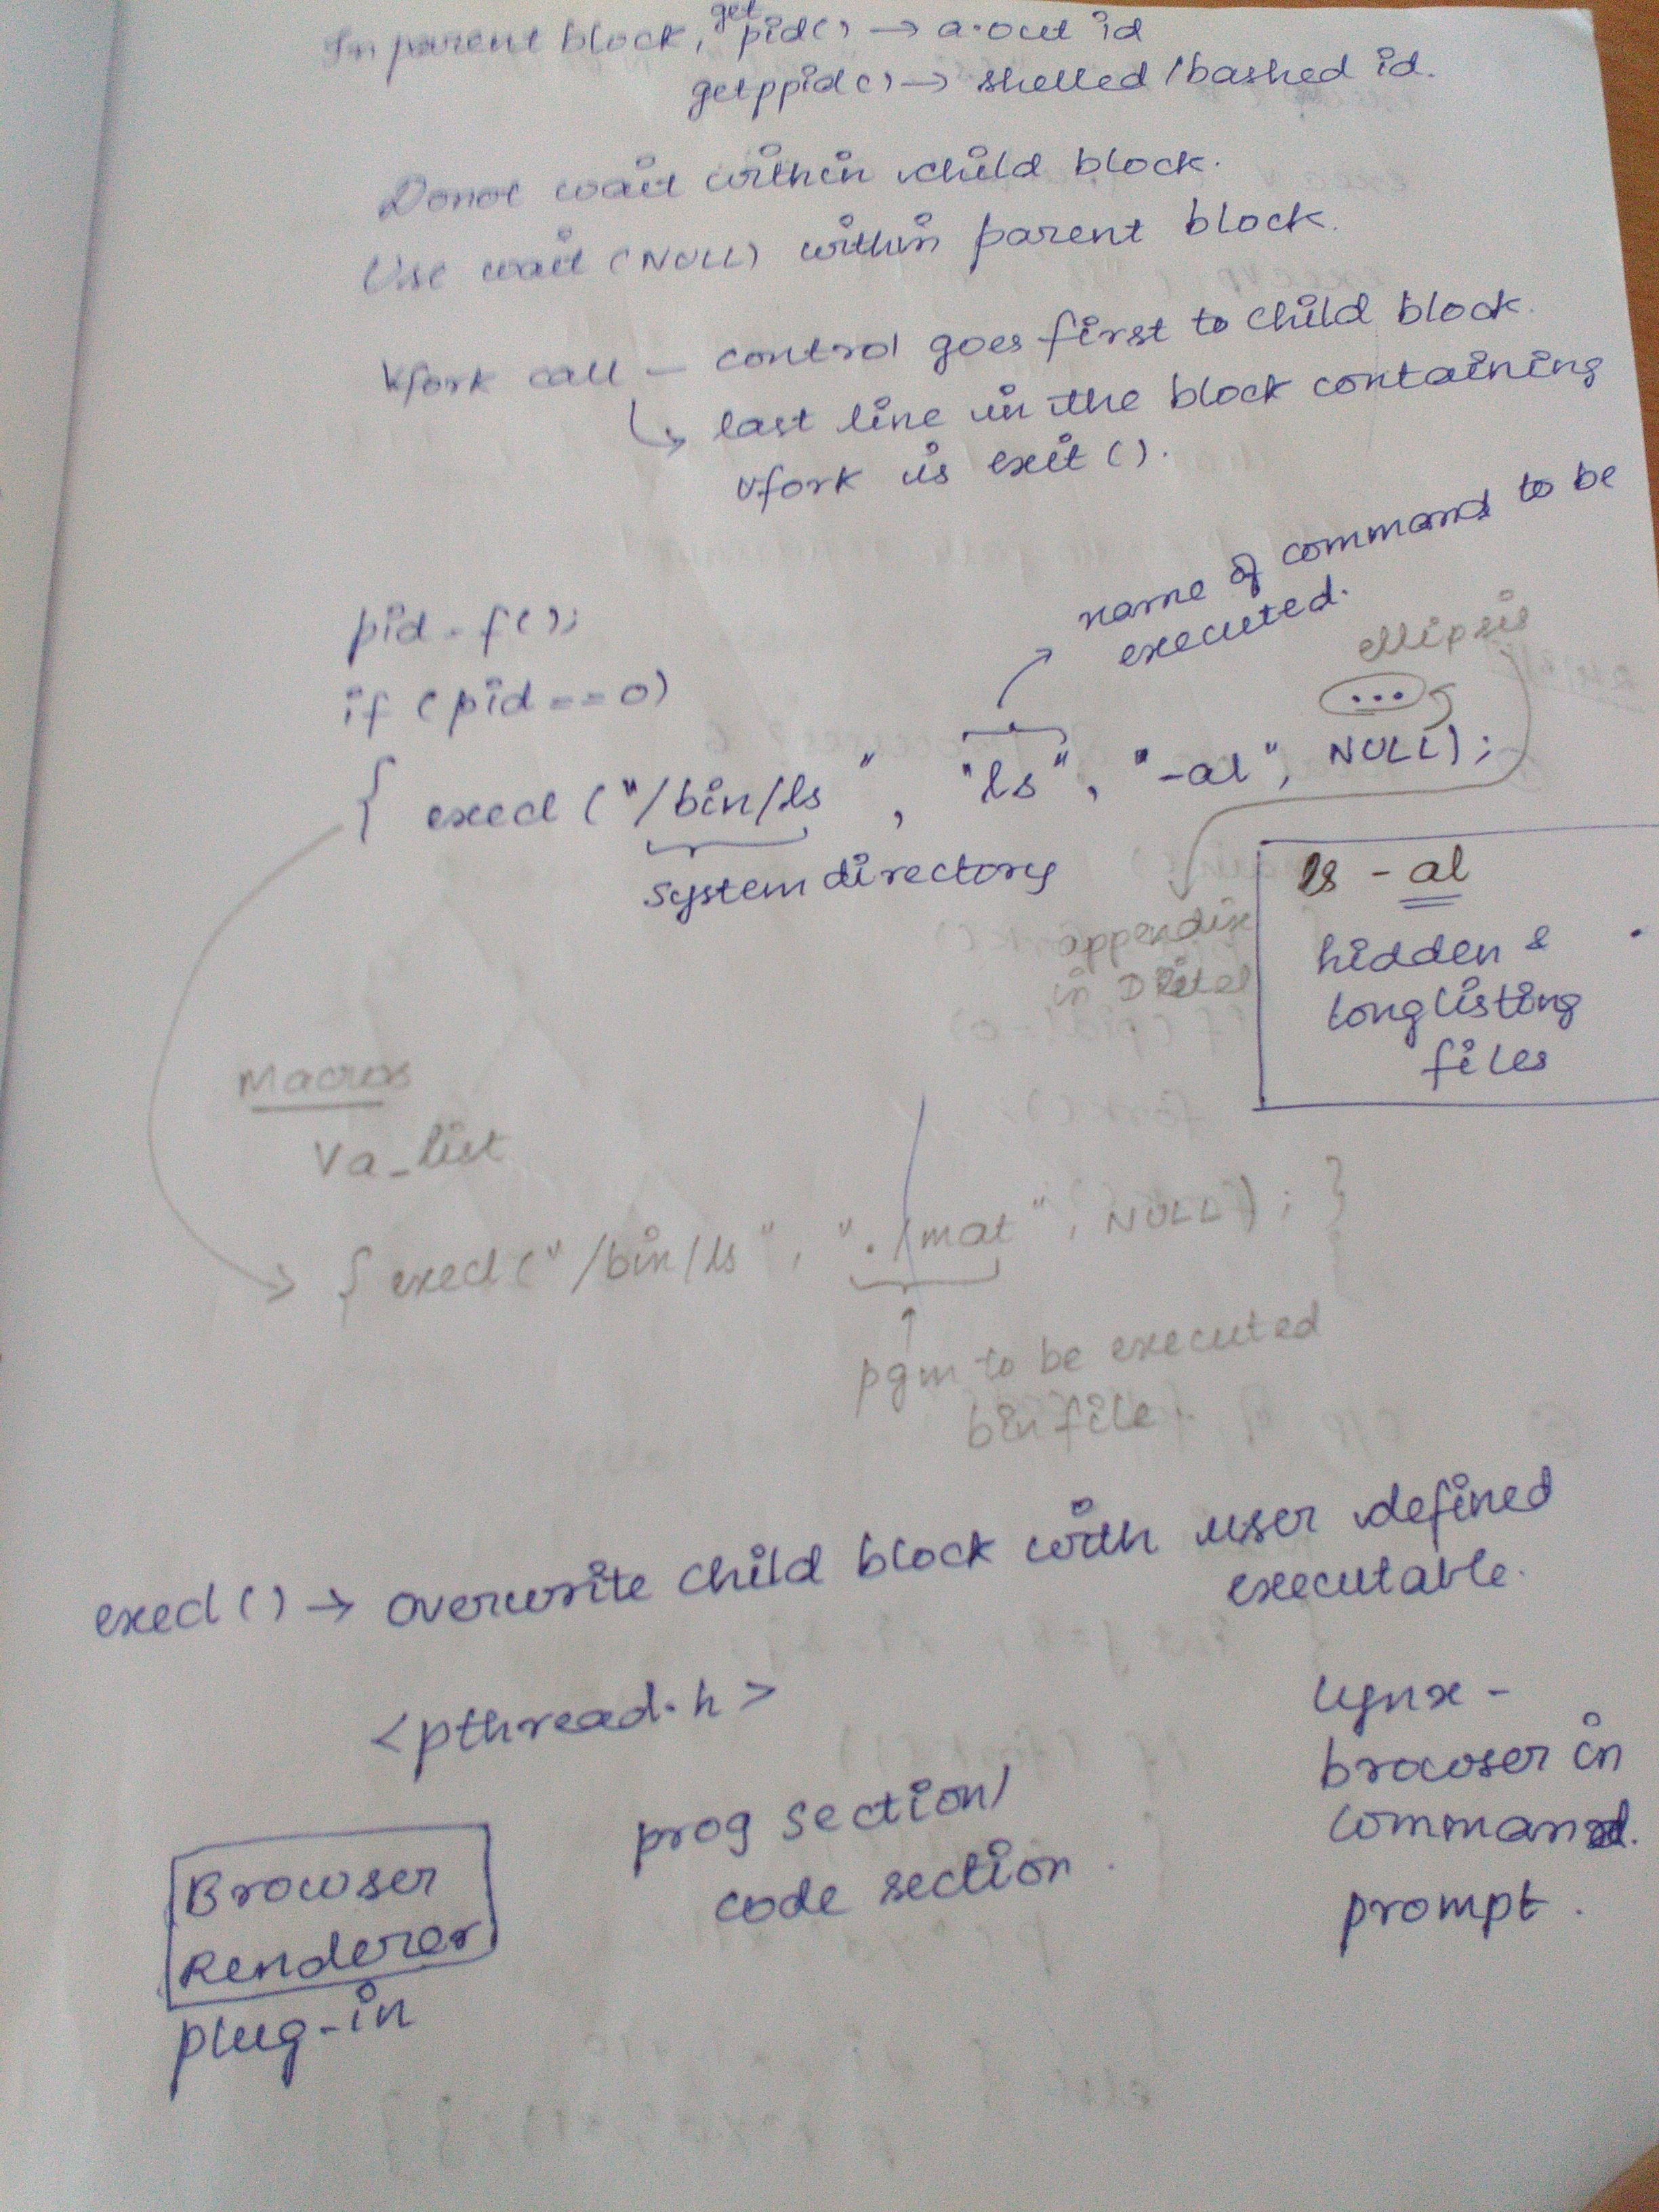 In parent block, getpid() → a.out id
getppid() → shelled / bashed id.
Donot wait within child block.
Use wait (NULL) within parent block.
Vfork call – control goes first to child block.
↳ last line in the block containing
vfork is exit().
name of command to be
executed.
ellipsis
pid = f();
if (pid == 0)
...
{ execl ("/bin/ls", "ls", "-al", NULL);
system directory
appendix
in Deitel
ls - al
hidden &
long listing
files
Macros
Va_list
→ { execl ("/bin/ls", "./mat", NULL); }
pgm to be executed
bin file.
execl () → overwrite child block with user defined
executable.
<pthread.h>
lynx -
browser in
command
prompt.
prog section/
code section.
Browser
Renderer
plug-in